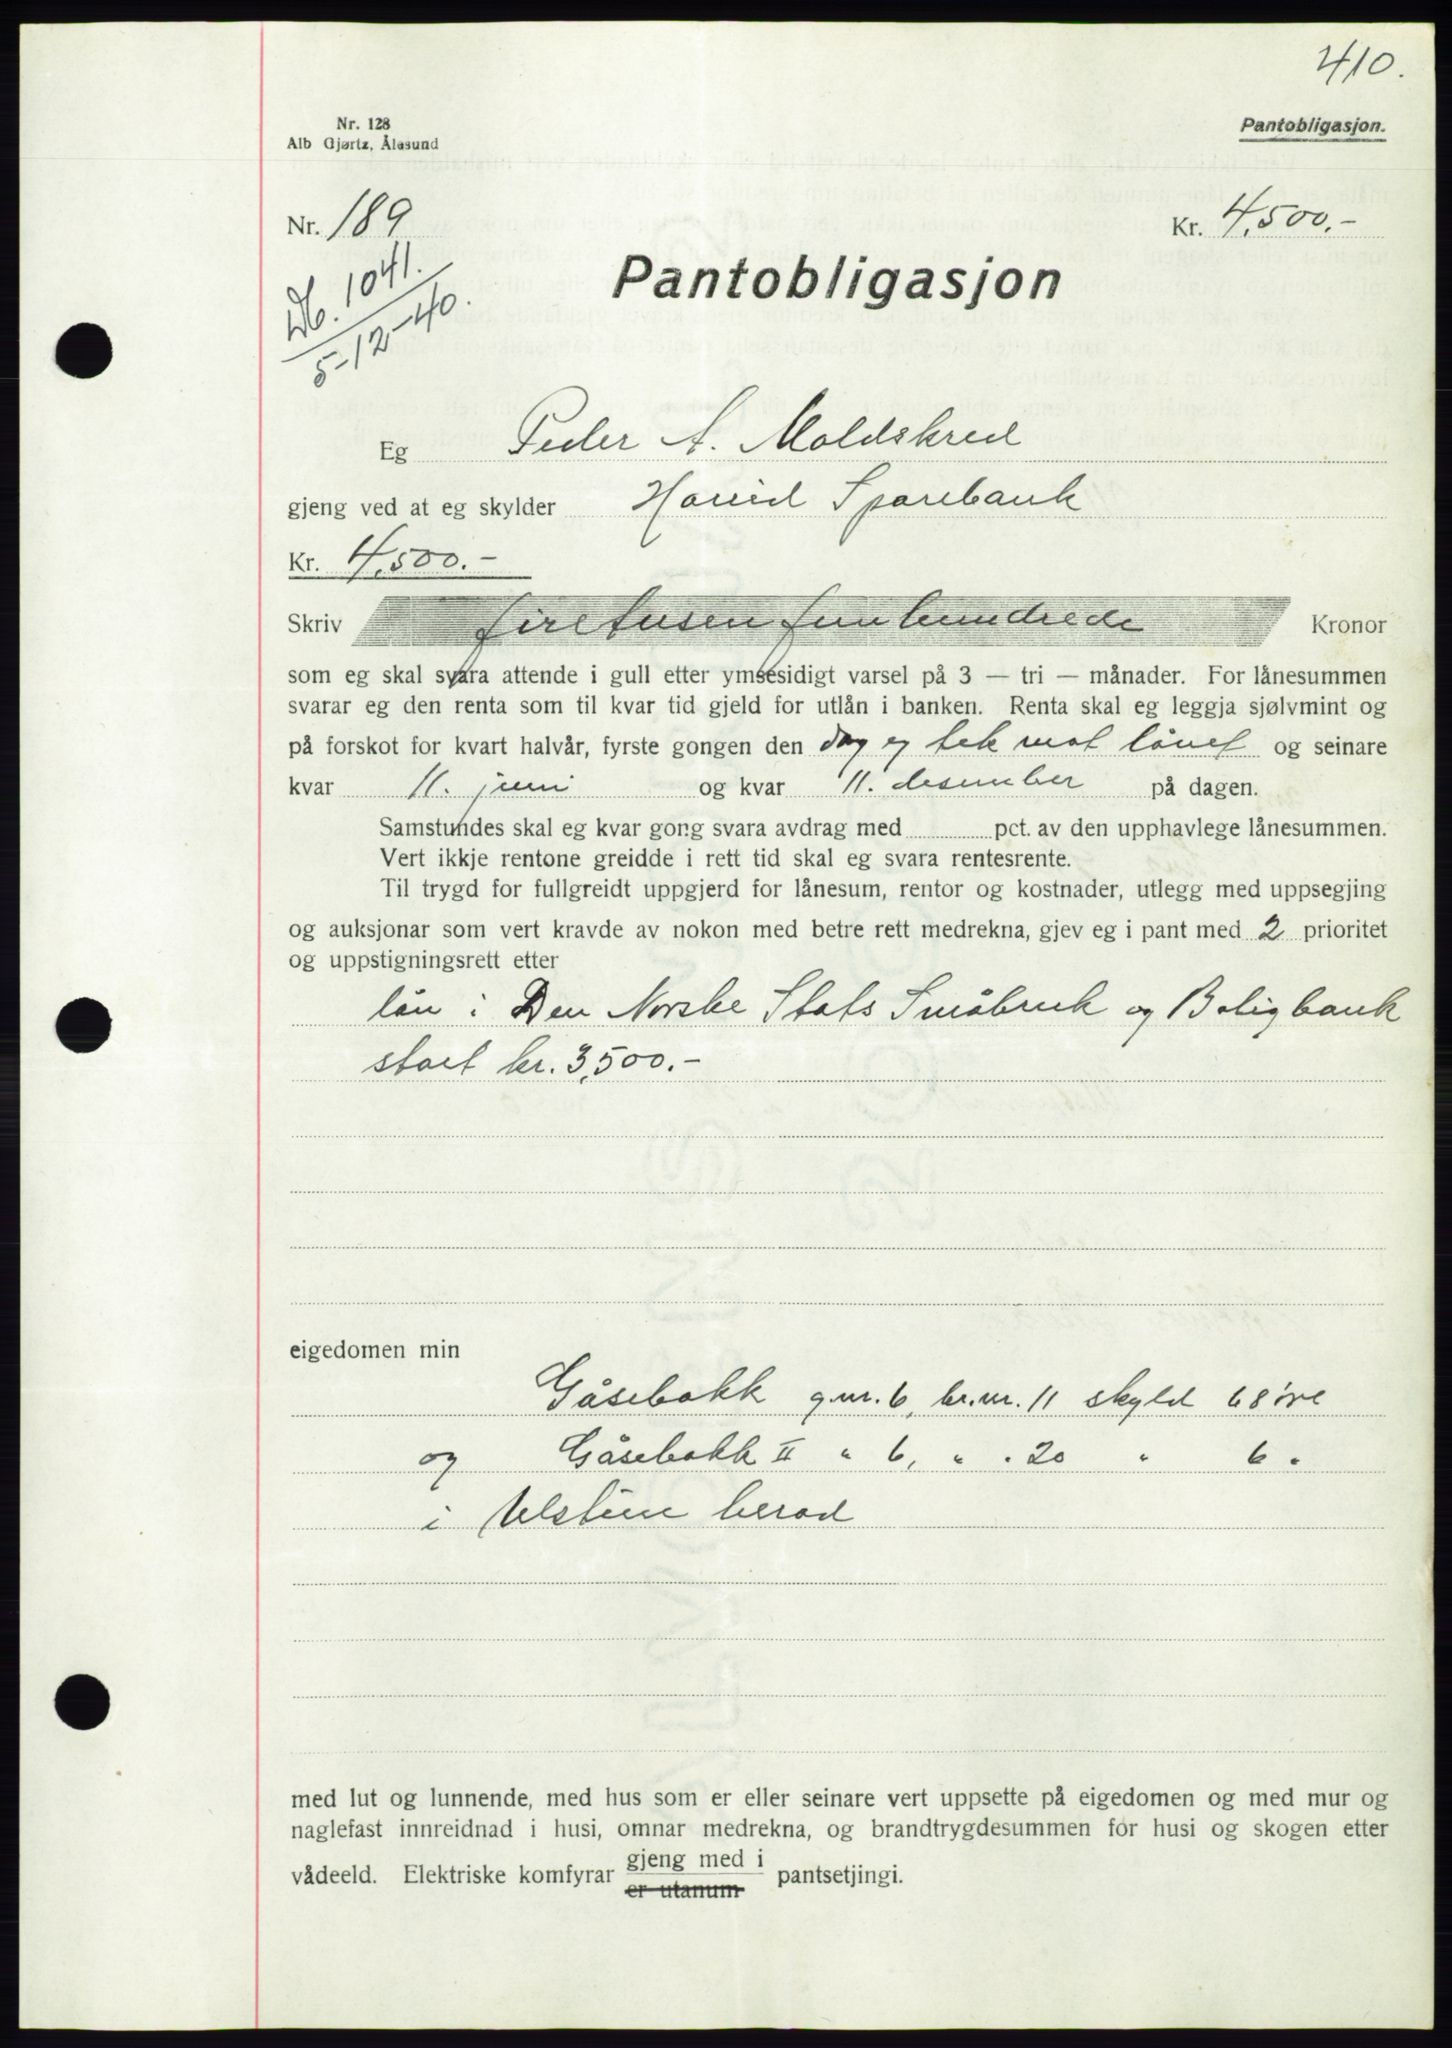 410.
Nr. 128
Alb Gjørtz, Ålesund
Pantobligasjon.
Nr. 189
Kr. 4.500.-
Db. 1041.
5-12-40.
Pantobligasjon
Eg Peder A. Moldskred
gjeng ved at eg skylder Hareid Sparebank
Kr. 4.500.-
Skriv firetusenfemhundrede Kronor
som eg skal svara attende i gull etter ymsesidigt varsel på 3 — tri — månader. For lånesummen
svarar eg den renta som til kvar tid gjeld for utlån i banken. Renta skal eg leggja sjølvmint og
på forskot for kvart halvår, fyrste gongen den dag eg tek mot lånet og seinare
kvar 11. juni og kvar 11. desember på dagen.
Samstundes skal eg kvar gong svara avdrag med pct. av den upphavlege lånesummen.
Vert ikkje rentone greidde i rett tid skal eg svara rentesrente.
Til trygd for fullgreidt uppgjerd for lånesum, rentor og kostnader, utlegg med uppsegjing
og auksjonar som vert kravde av nokon med betre rett medrekna, gjev eg i pant med 2 prioritet
og uppstigningsrett etter
lån i Den Norske Stats Småbruk og Boligbank
stort kr. 3,500.-
eigedomen min
Gåsebakk g.nr. 6, br.nr. 11 skyld 68 øre
og Gåsebakk II " 6, " . 20 " 6 "
i Ulstein herad
med lut og lunnende, med hus som er eller seinare vert uppsette på eigedomen og med mur og
naglefast innreidnad i husi, omnar medrekna, og brandtrygdesummen for husi og skogen etter
vådeeld. Elektriske komfyrar gjeng med i pantsetjingi.
er utanum